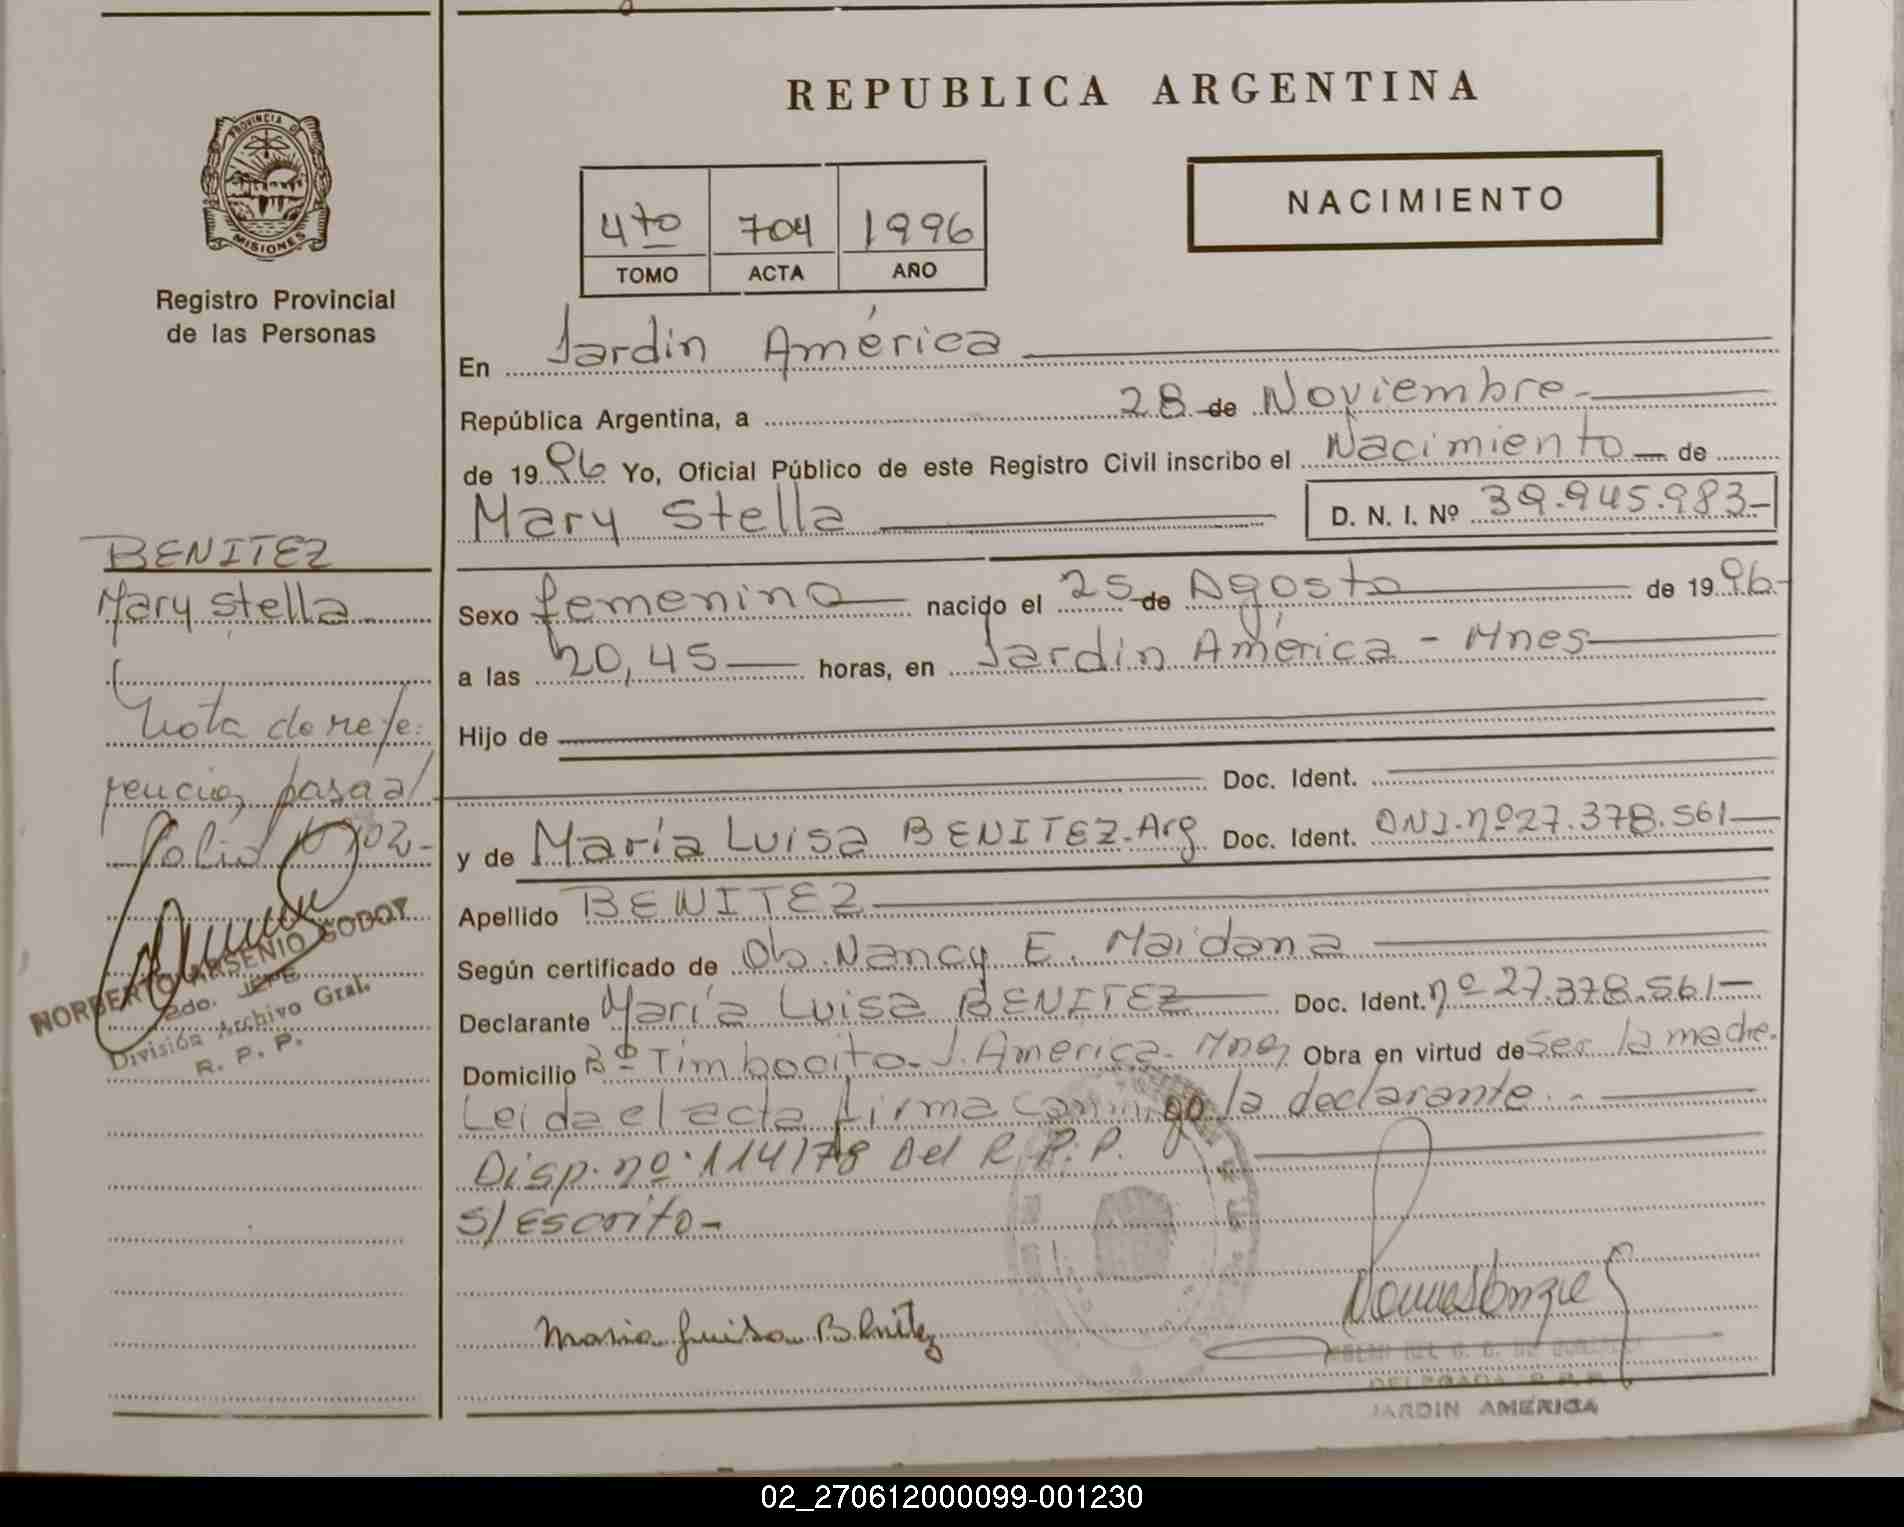 REPUBLICA ARGENTINA
PROVINCIA DE
MISIONES
Registro Provincial
de las Personas
4to 704 1996
TOMO ACTA AÑO
NACIMIENTO
En Jardin América
República Argentina, a 28 de Noviembre
de 1996 Yo, Oficial Público de este Registro Civil inscribo el Nacimiento de
Mary Stella D. N. I. Nº 39.945.983-
Sexo femenino nacido el 25 de Agosto de 1996
a las 20,45 horas, en Jardin América - Mnes
Hijo de
Doc. Ident.
y de María Luisa BENITEZ-Arg Doc. Ident. DNI.nº27.378.561
Apellido BENITEZ
Según certificado de Ob. Nancy E. Maidana
Declarante María Luisa BENITEZ Doc. Ident. nº27.378.561-
Domicilio Bº Timbocito- J. America- Mnes Obra en virtud de ser la madre.
Leida el acta firma conmigo la declarante.-
Disp. nº 114/78 del R.P.P.
S/Escrito-
Maria Luisa Benitez
DELEGADA R.P.P.
JARDIN AMÉRICA
BENITEZ
Mary Stella
Nota de refe-
rencia, pasa al
folio
NORBERTO ARSENIO GODOY
2do. JEFE
División Archivo Gral.
R. P. P.
02_270612000099-001230